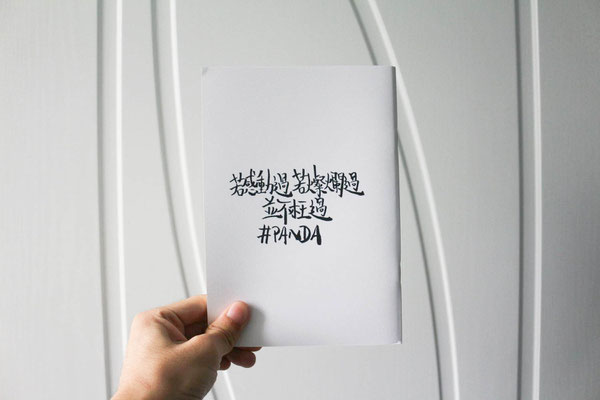 若感動過 若燦爛過
並不枉過
#PANDA